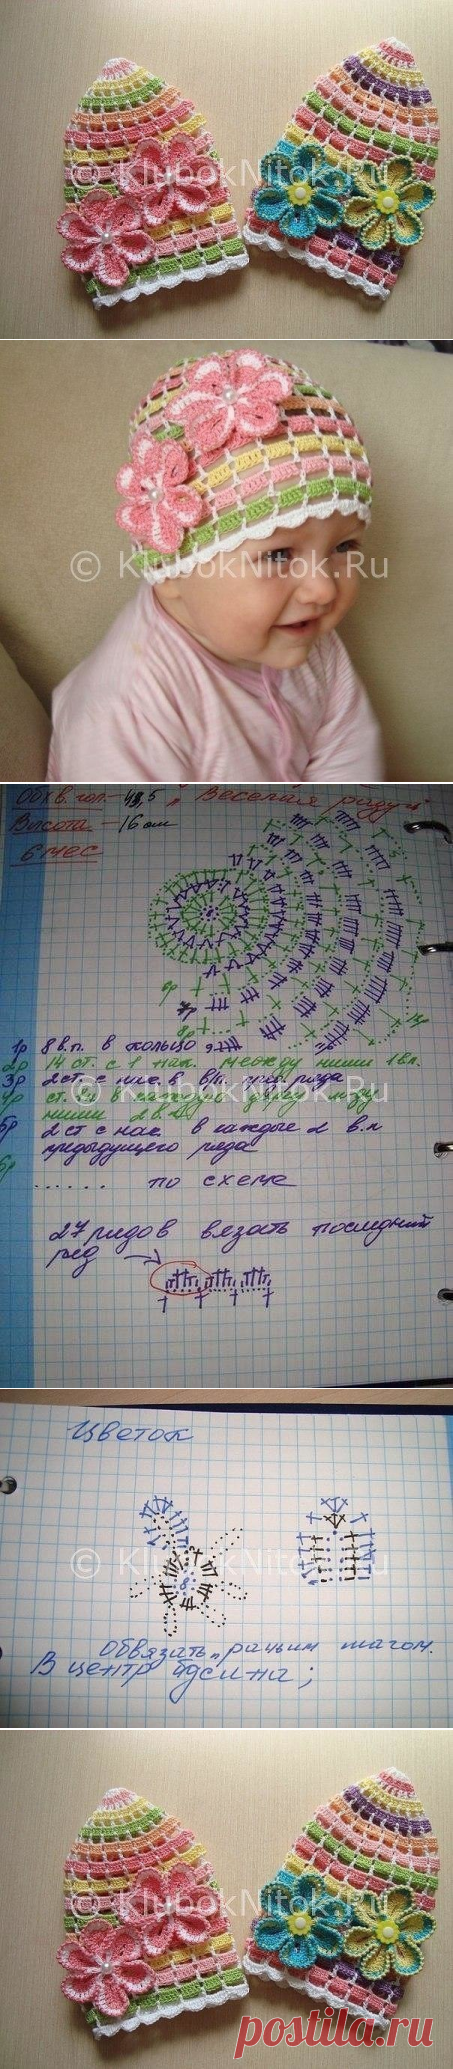 © KlubokNitok.Ru
© KlubokNitok.Ru
Обхв. гол. - 43,5 "Веселая радуга"
Высота - 16 см
6 мес
6р
7р
8р
1р 8 в.п. в кольцо
2р 14 ст. с 1 нак. между ними 1 вп.
3р 2 ст. с нак. в в/п пред ряда
© KlubokNitok.Ru
4р ст. в каждую
ними 2 в.п.
5р 2 ст с нак. в каждые 2 в.п
предыдущего ряда
6р ...... по схеме
27 рядов вязать последний
ряд
Цветок
© KlubokNitok.Ru
8
Обвязать "рачьим шагом.
В центр бусина;
© KlubokNitok.Ru
postila.ru